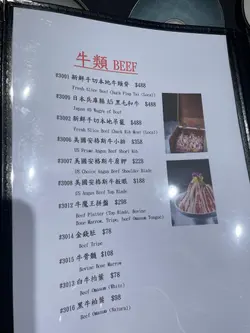 牛類 BEEF
#3001 新鮮手切本地牛頸脊 $488
Fresh Slice Beef (Neck Fing Tau) (Local)
#3009 日本兵庫縣A5黑毛和牛 $488
Japan A5 Wagyu of Beef
#3002 新鮮手切本地吊龍 $488
Fresh Slice Beef (Back Rib Meat) (Local)
#3006 美國安格斯牛小排 $358
US Prime Angus Beef Short Rib
#3007 美國安格斯牛肩胛 $328
US Choice Angus Beef Shoulder Blade
#3008 美國安格斯牛板腱 $188
US Angus Beef Top Blade
#3012 牛魔王拼盤 $298
Beef Platter (Top Blade, Marrow
Bone Marrow, Tripe, Beef Omasum, Tongue)
#3014 金錢肚 $78
Beef Tripe
#3015 牛骨髓 $108
Bovine Bone Marrow
#3013 白牛柏葉 $78
Beef Omasum (White)
#3016 黑牛柏葉 $98
Beef Omasum (Natural)